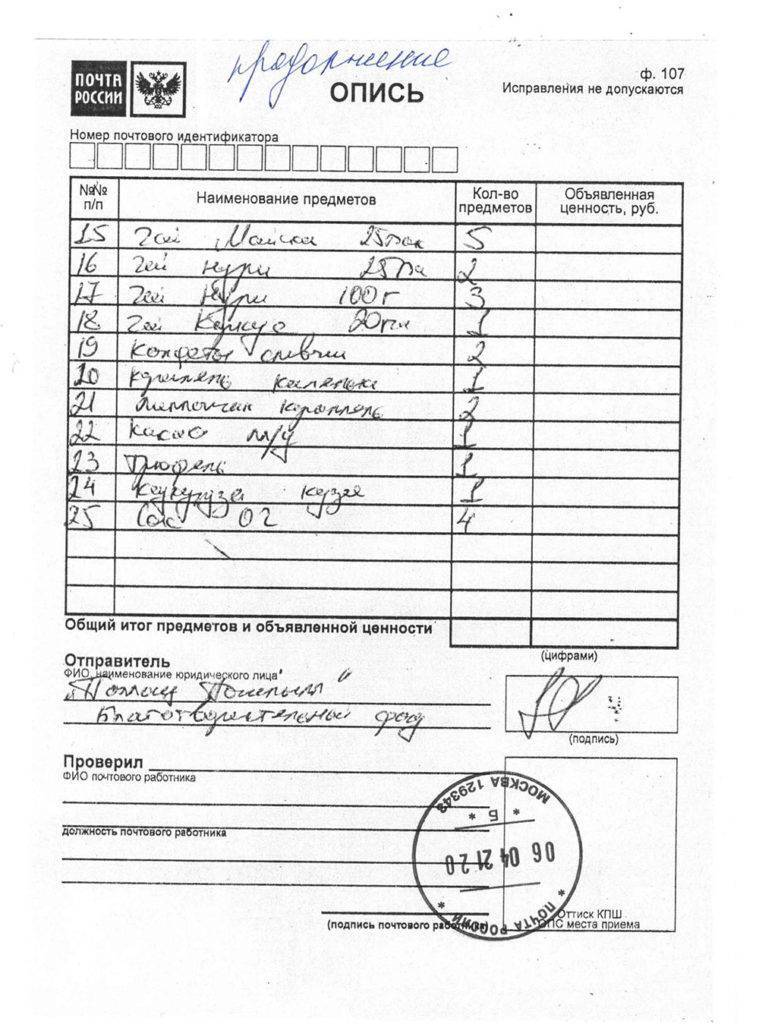 ПОЧТА
РОССИИ
продолжение
ОПИСЬ
ф. 107
Исправления не допускаются
Номер почтового идентификатора
№№ п/п Наименование предметов Кол-во предметов Объявленная ценность, руб.
15 Чай Майски 25пак 5
16 Чай Нури 25па 2
17 Чай Нури 100г 3
18 Чай 20пак 1
19 Конфеты 2
20 1
21 карамель 2
22 Какао 1
23 Трюфель 1
24 Кукуруза 1
25 4
Общий итог предметов и объявленной ценности
(цифрами)
Отправитель
ФИО, наименование юридического лица
"Помощ "
Благотворительный фонд
(подпись)
Проверил
ФИО почтового работника
должность почтового работника
(подпись почтового работника)
МОСКВА 129343
* Б *
06 04 21 20
* ПОЧТА РОССИИ *
Оттиск КПШ
ОПС места приема